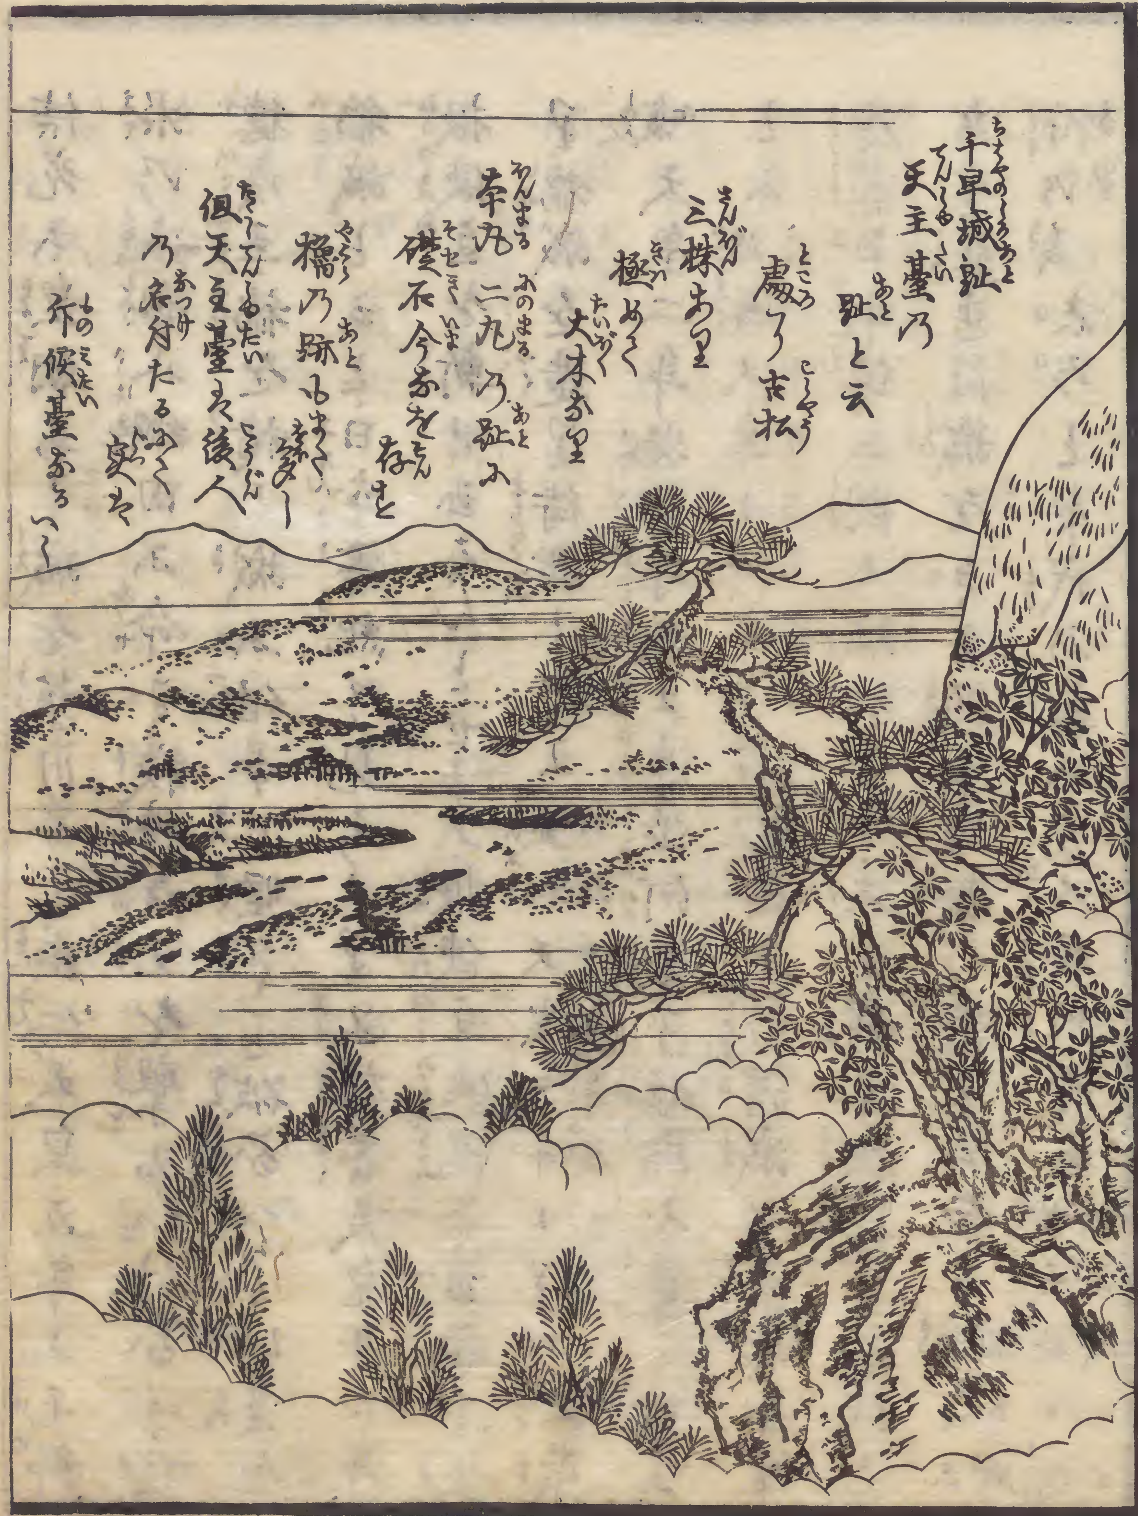 千早城趾
天主臺乃
趾と云
處に古松
三株あり
極めて
大木なり
本丸二丸乃趾に
礎石今なを
存す
櫓乃跡もまた
多し
但天主臺は後人
乃名付たるにて
実は
斥候臺なるべし